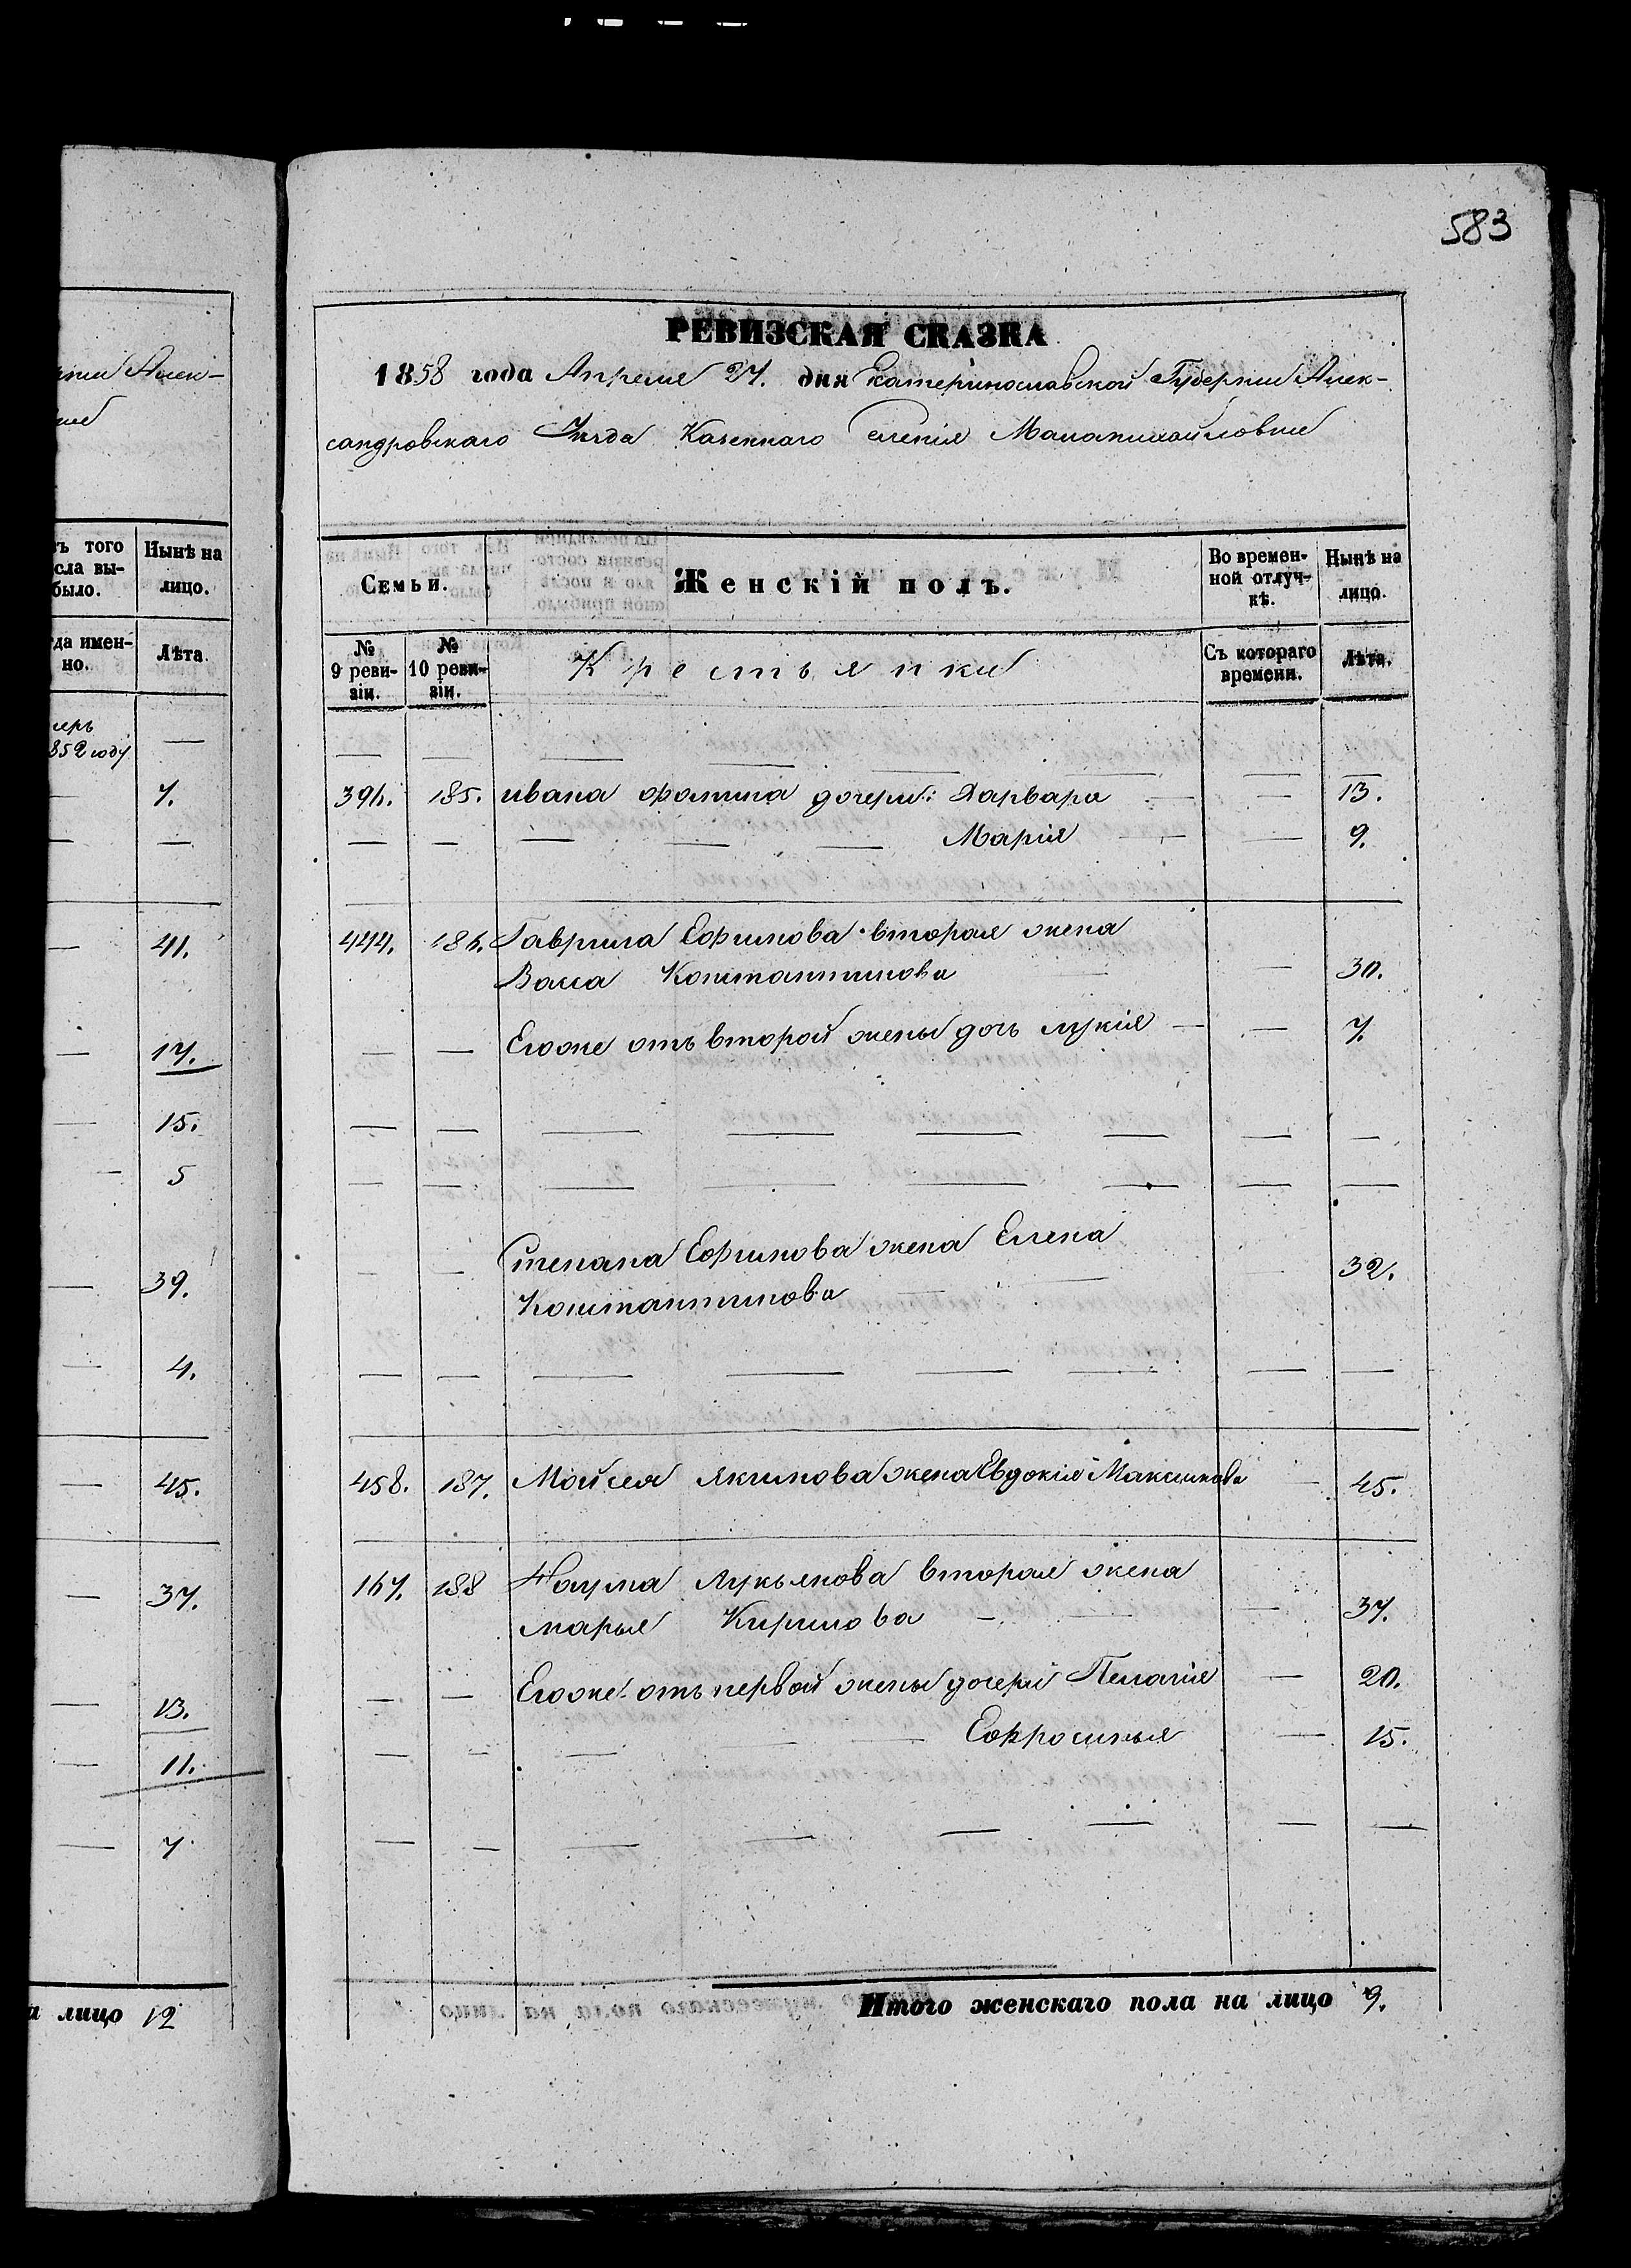 583
РЕВИЗСКАЯ СКАЗКА
1858 года Апреля 27. дня Екатеринославской Губернии Алек-
сандровскаго Уезда Казеннаго селенія Маломихайловки
Семьи.
Женскій полъ.
Во времен-
ной отлуч-
кѣ.
Нынѣ на
лицо.
№
9 реви-
зіи.
№
10 реви-
зіи.
Крестьянки
Съ котораго
времени.
Лѣта.
396. 185. ивана Фомина дочери: Варвара — — 13.
— — — — — Марія — — 9.
444. 186. Гаврила Ефимова вторая жена
Васса Константинова — — 30.
— — Егоже отъ второй жены дочь лукія — — 7.
— — — — — — — —
— — — — — — — —
— — Степана Ефимова жена Елена
Константинова — — 32.
— — — — — — — —
458. 187. Мойсея Якимова жена Евдокія Максимова — 45.
167. 188 Наума Лукьянова вторая жена
марья Кирилова — — — 37.
— — Егоже отъ первой жены дочери Пелагія — 20.
— — — — — Ефросинья — 15.
— — — — — — — —
Итого женскаго пола на лицо 9.
Алек-
ъ того
сла вы-
было.
Нынѣ на
лицо.
да имен-
но.
Лѣта
852 году —
— 7.
— —
— 41.
— 17.
— 15.
— 5
— 39.
— 4.
— 45.
— 37.
— 13.
— 11.
— 7.
а лицо 12